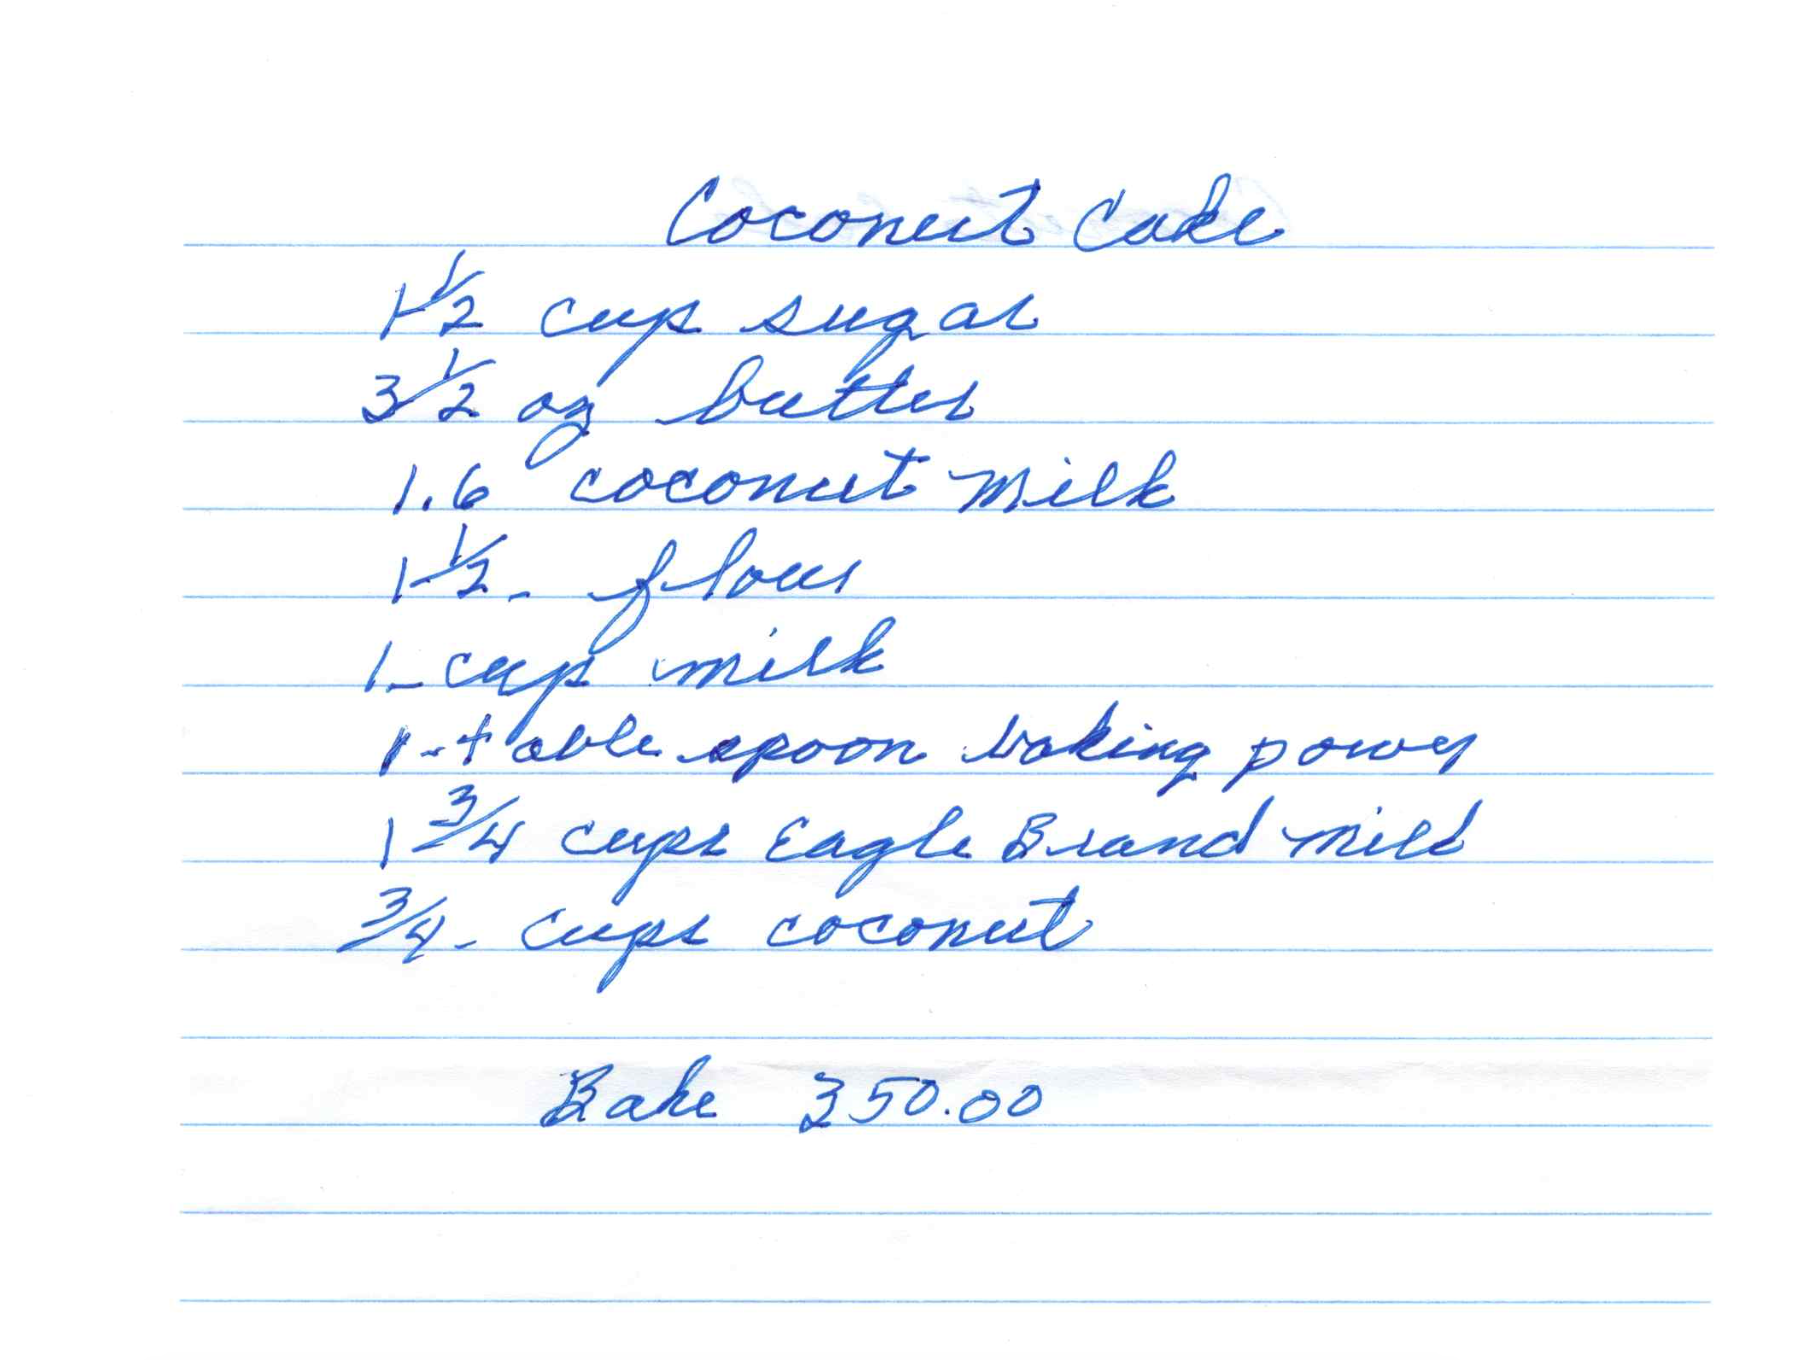 Coconut Cake
1 1/2 cup sugar
3 1/2 oz butter
1.6 coconut milk
1-1/2- flour
1-cup milk
1-table spoon baking power
1 3/4 cups Eagle Brand Milk
3/4- cups coconut
Bake 350.00